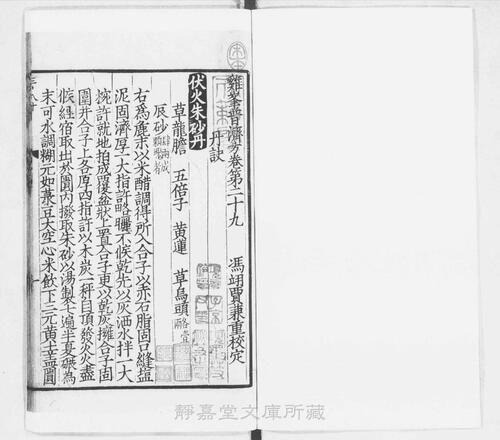 雞峯普濟方卷第二十九
馮翊賈兼重校定
丹訣
伏火朱砂丹
草龍膽 五倍子 黃連 草烏頭
辰砂
右為麁末以米醋調得所入合子以赤石脂固口縫鹽
泥固濟厚一大指許略曬不候乾先以灰洒水拌一大
椀許就地拍成覆盆狀上置合子更以乾灰擁合子固
圍并合子上各厚四指許以木炭一秤自頂發火火盡
候經宿取出於圓內撥取朱砂以湯製七遍半夏碾為
末可水調糊元如菉豆大空心米飲下三元黃
靜嘉堂文庫所藏